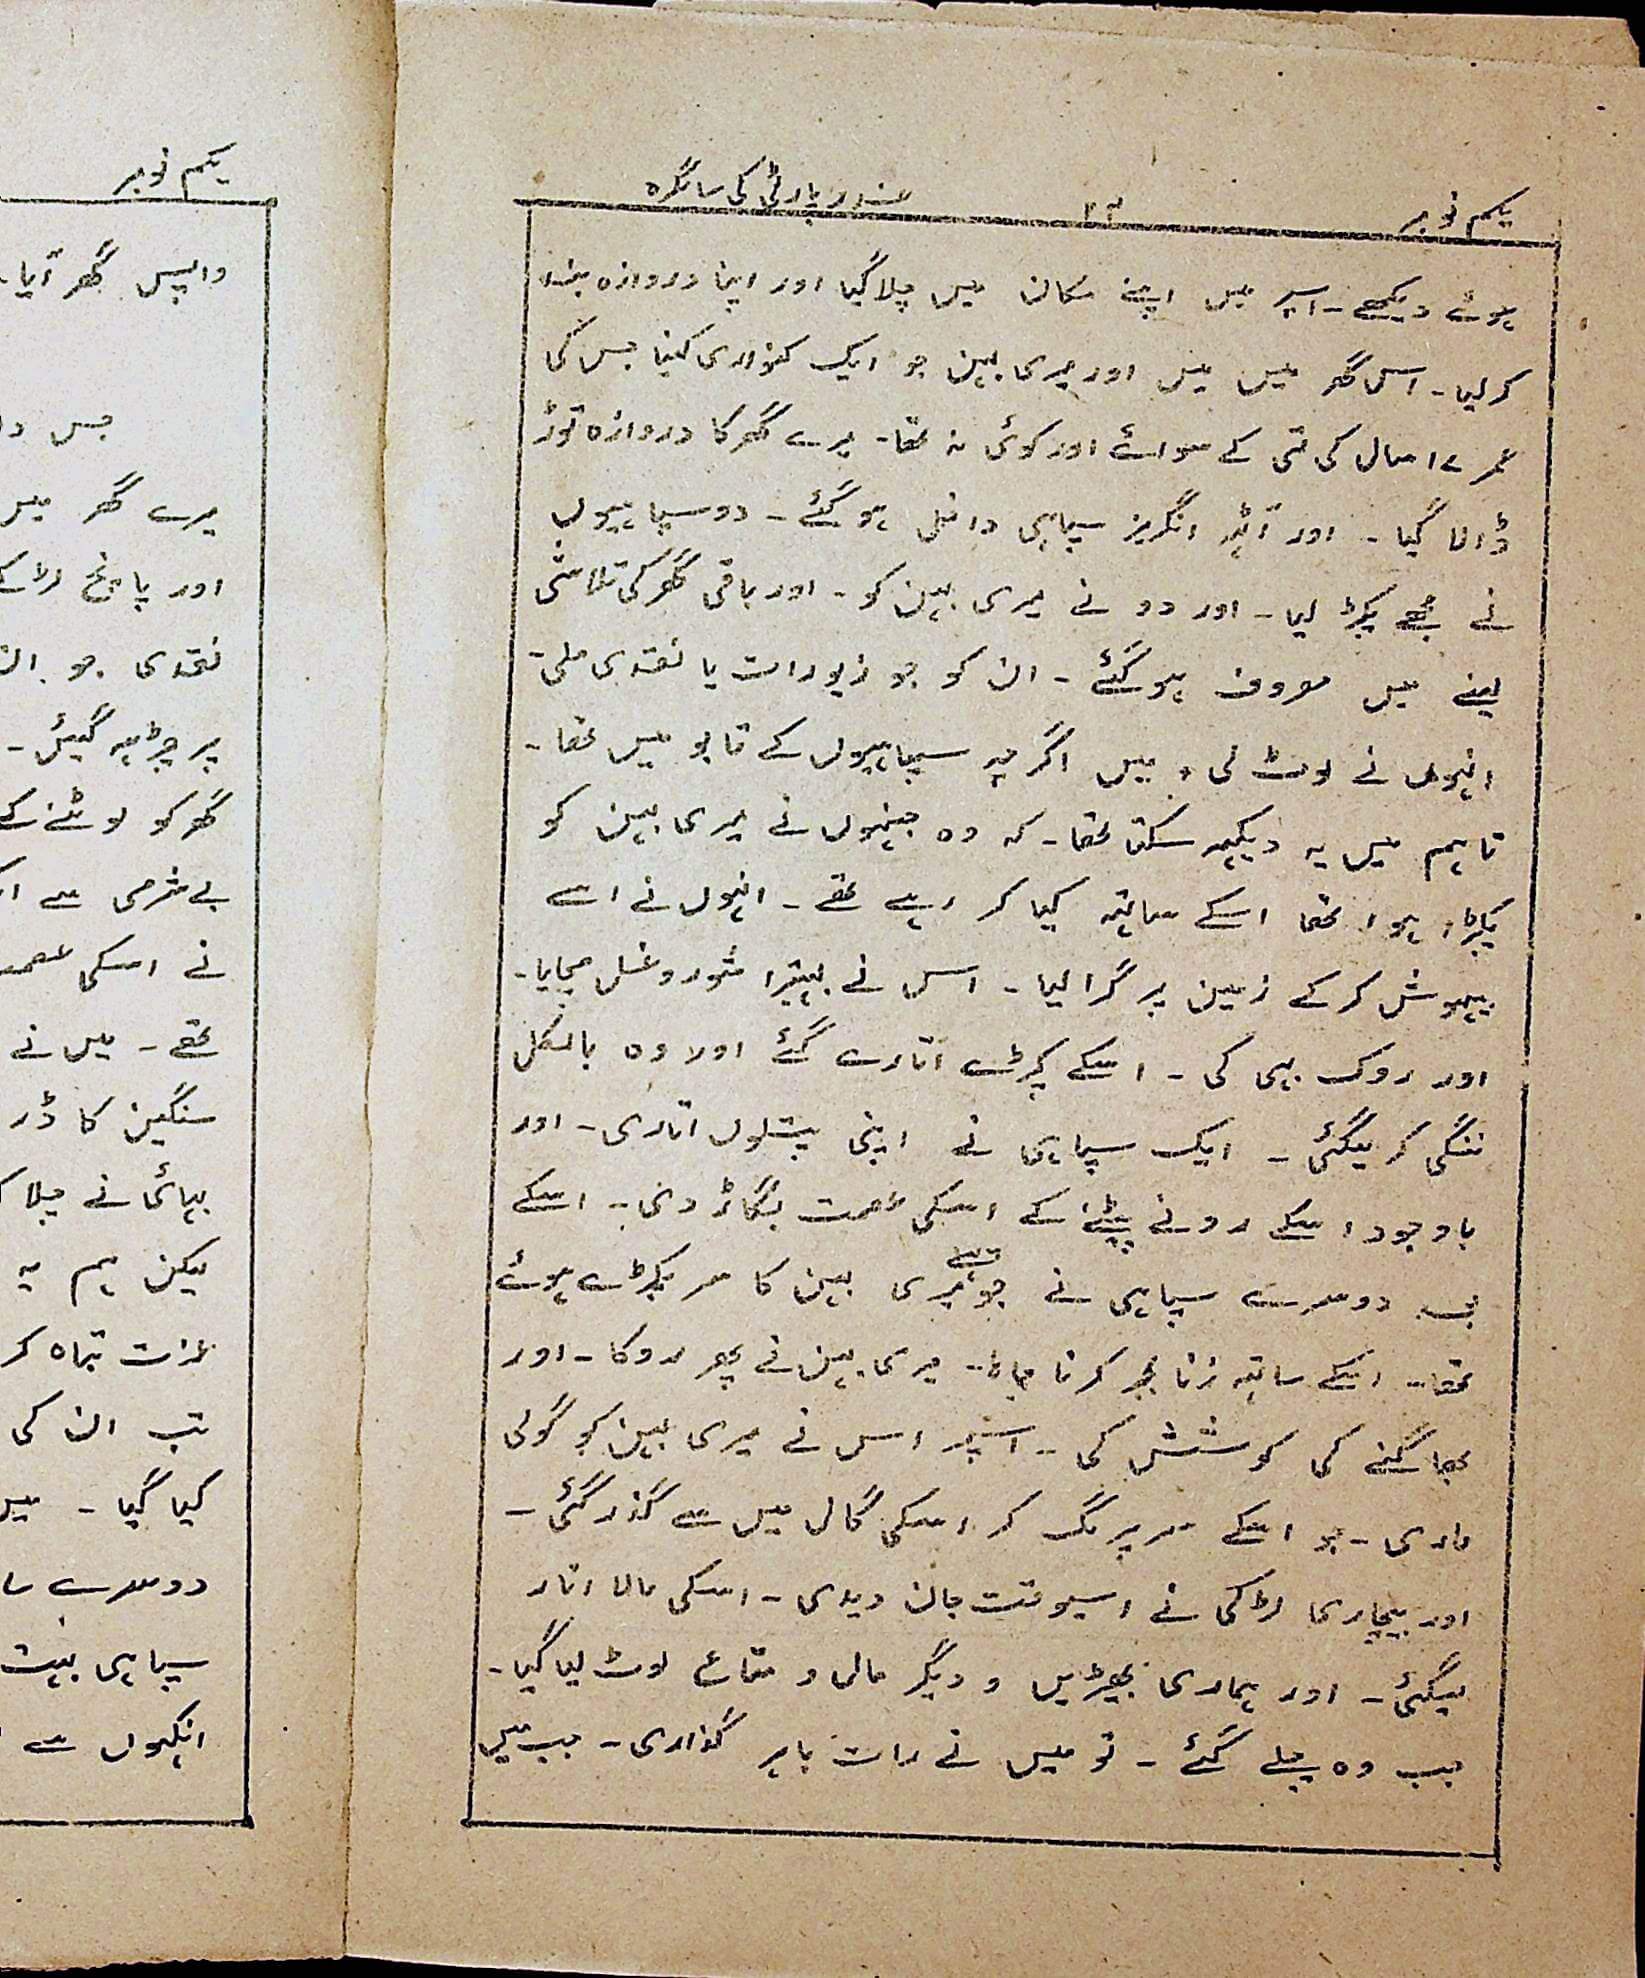 یکم نومبر ۲۲ غدر پارٹی کی سالگرہ
ہوئے دیکھے۔ اسپر میں اپنے مکان میں چلا گیا اور اپنا دروازہ بند
کر لیا۔ اس گھر میں میں اور میری بہن جو ایک کنواری کنیا جس کی
عمر ۱۷ سال کی تہی کے سوائے اور کوئی نہ تھا۔ میرے گھر کا دروازہ توڑ
ڈالا گیا۔ اور آٹہہ انگریز سپاہی داخل ہو گئے۔ دو سپاہیوں
نے مجھے پکڑ لیا۔ اور دو نے میری بہن کو۔ اور باقی گھر کی تلاشی
لینے میں مصروف ہو گئے۔ ان کو جو زیورات یا نقدی ملی۔
انہوں نے لوٹ لی۔ میں اگرچہ سپاہیوں کے قابو میں تھا۔
تاہم میں یہ دیکہہ سکتا تھا۔ کہ وہ جنہوں نے میری بہن کو
پکڑا ہوا تھا اسکے ساتہہ کیا کر رہے تھے۔ انہوں نے اسے
بیہوش کر کے زمین پر گرا لیا۔ اس نے بہتیرا شور و غل مچایا۔
اور روک بہی کی۔ اسکے کپڑے اتارے گئے اور وہ بالکل
ننگی کر یگئی۔ ایک سپاہی نے اپنی پتلون اتاری۔ اور
باوجود اسکے رونے پیٹنے کے اسکی عصمت بگاڑ دی۔ اسکے
ب دوسرے سپاہی نے جو نے میری بہن کا سر پکڑے ہوئے
تھا۔ اسکے ساتہہ زنا بجبر کرنا چاہا۔ میری بہن نے پھر روکا۔ اور
بھاگنے کی کوشش کی۔ اسپر اس نے میری بہن کو گولی
ماری۔ جو اسکے سر پر لگ کر اسکی گال میں سے گذر گئی۔
اور بیچاری لڑکی نے اسیوقت جان دیدی۔ اسکی مالا اتار
لیگئی۔ اور ہماری بھیڑیں و دیگر مال و متاع لوٹ لیا گیا۔
جب وہ چلے گئے۔ تو میں نے رات باہر گذاری۔ جب میں
یکم نومبر
واپس گھر آیا۔
جس
میرے گھر میں
اور پانچ لڑکے
نقدی جو
پر چڑہہ گیئں۔
گھر کو لوٹنے کے
بے شرمی سے
نے اسکی
تھے۔ میں نے
سنگین کا ڈر
بہائی نے چلا
لیکن ہم یہ
عزت تباہ کر
تب ان کی
کیا گیا۔
دوسرے
سپاہی بہت
آنکہوں سے